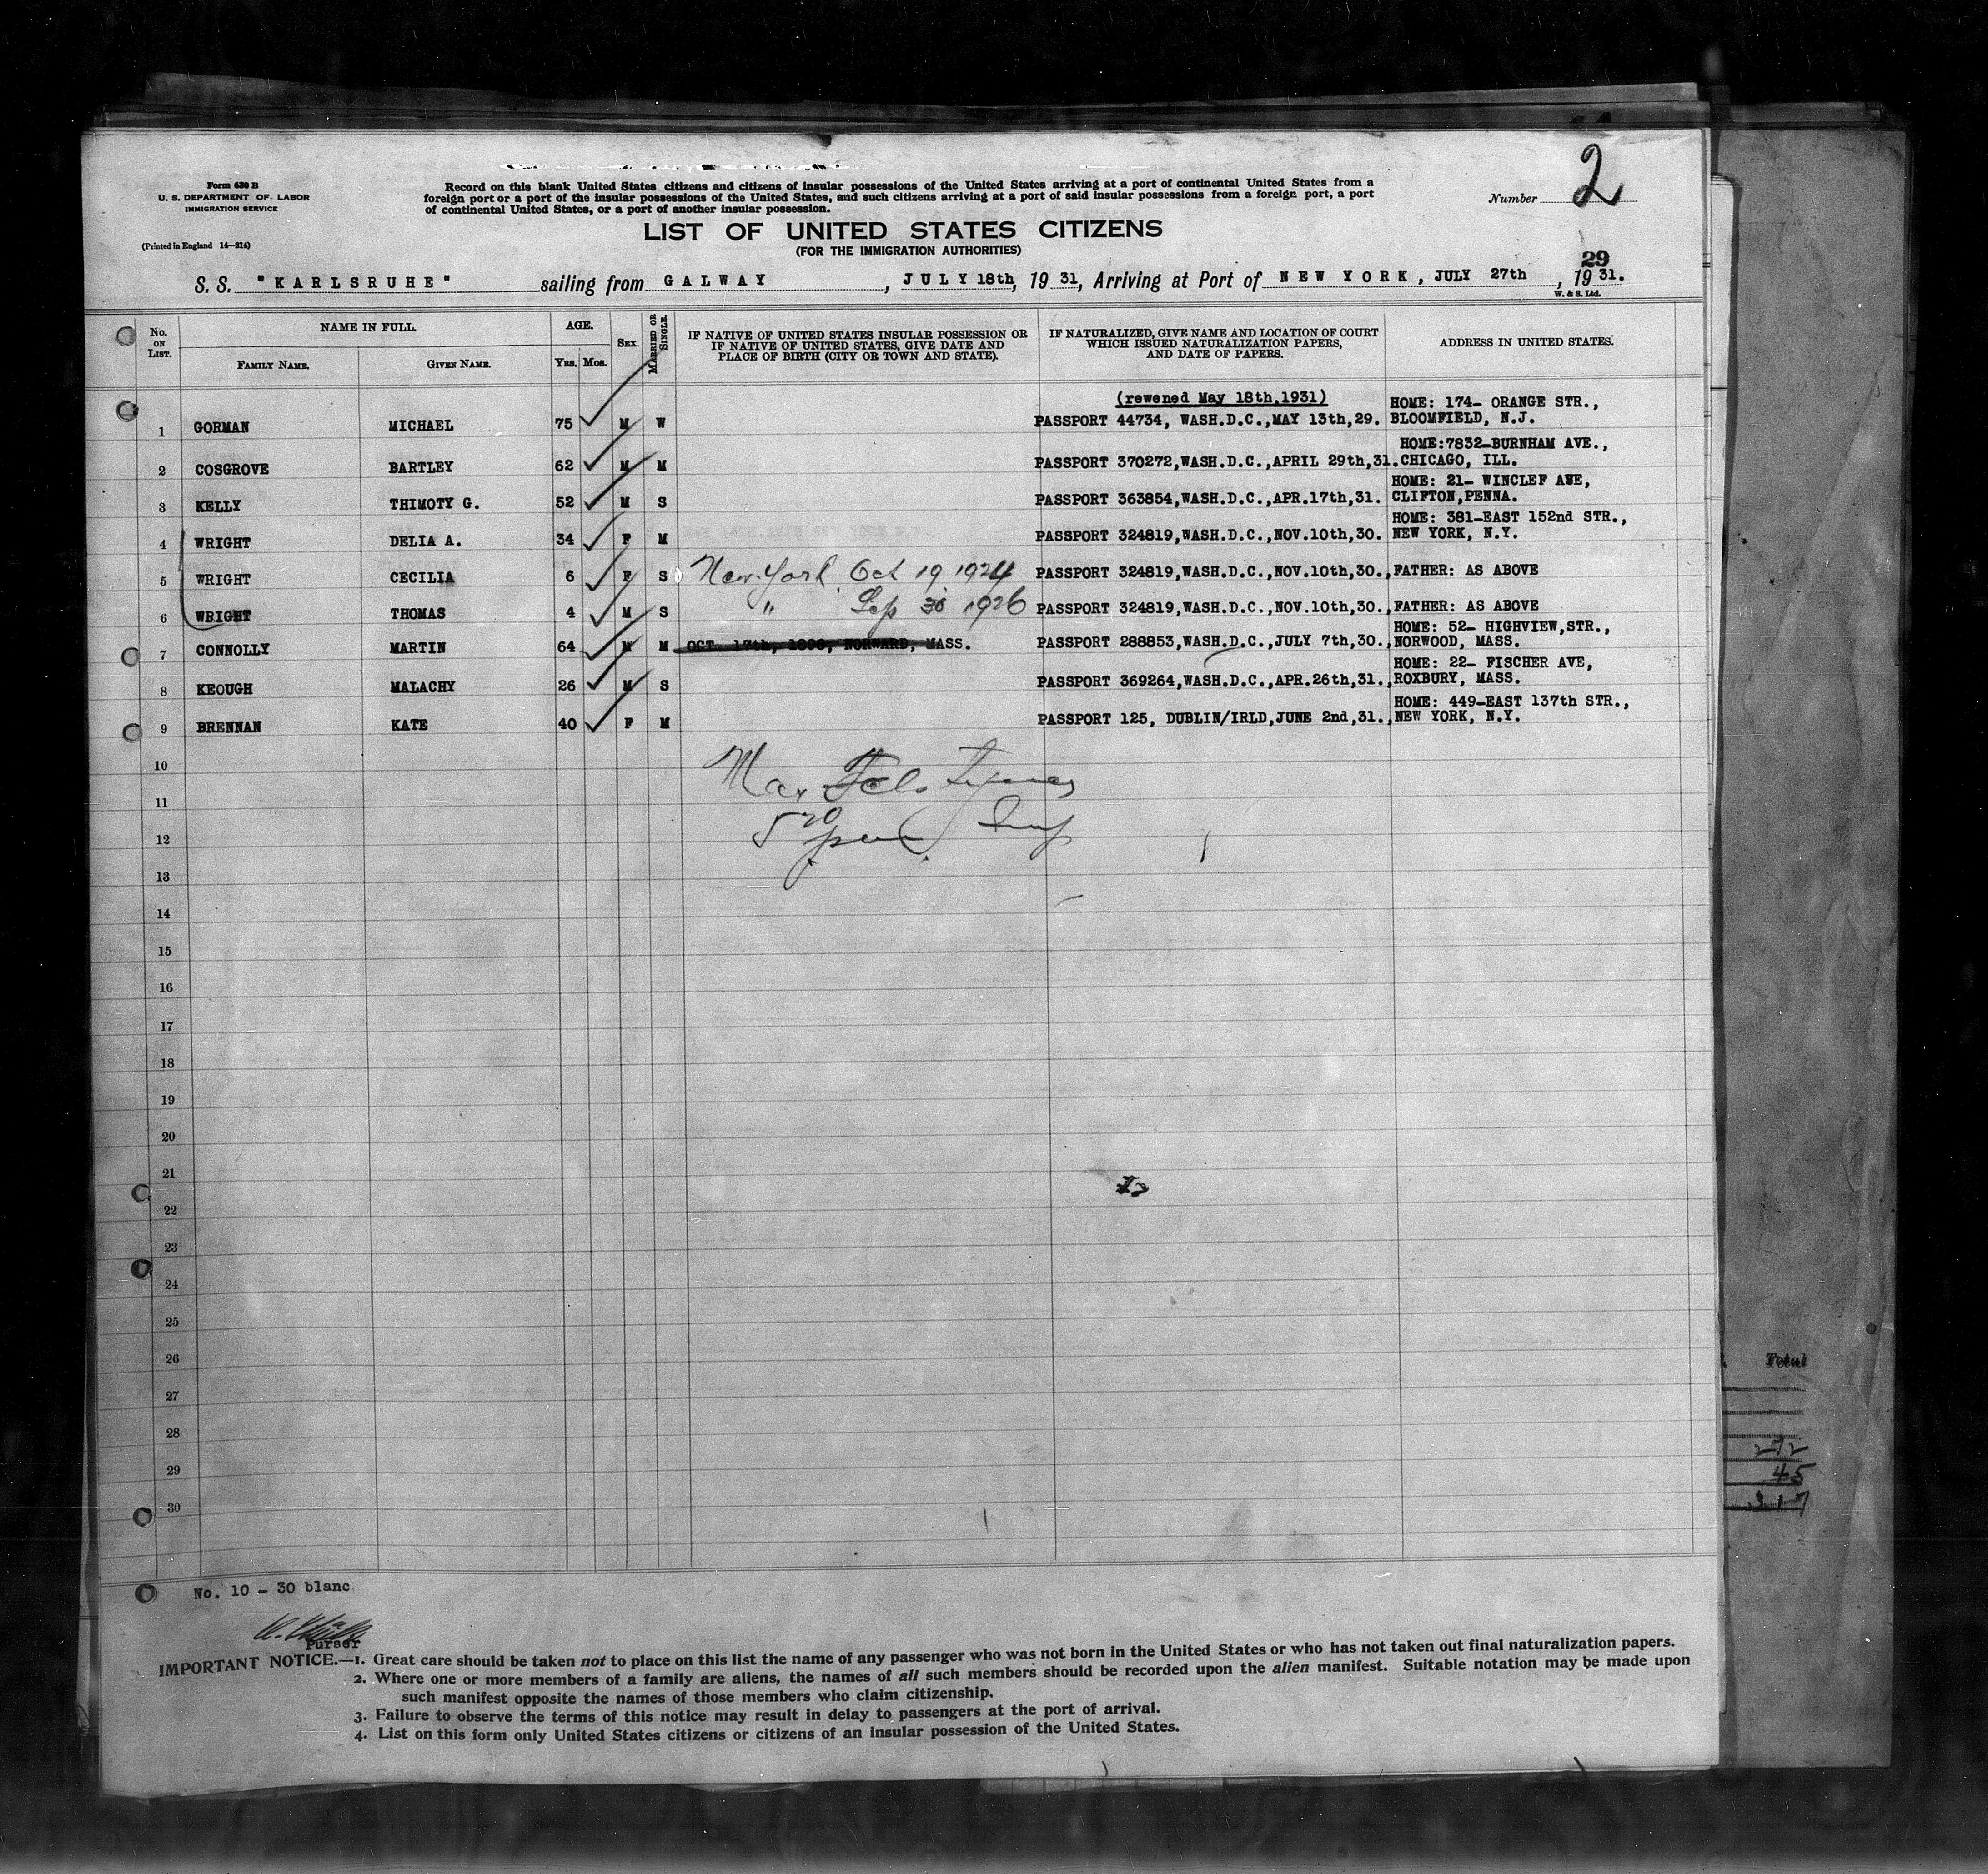 Form 630 B
U. S. DEPARTMENT OF LABOR
IMMIGRATION SERVICE
(Printed in England 14—214)
Record on this blank United States citizens and citizens of insular possessions of the United States arriving at a port of continental United States from a
foreign port or a port of the insular possessions of the United States, and such citizens arriving at a port of said insular possessions from a foreign port, a port
of continental United States, or a port of another insular possession.
Number 2
LIST OF UNITED STATES CITIZENS
(FOR THE IMMIGRATION AUTHORITIES)
29
S. S. "KARLSRUHE" sailing from GALWAY, JULY 18th, 19 31, Arriving at Port of NEW YORK, JULY 27th, 19 31.
W. & S. Ltd.
No. ON LIST. NAME IN FULL. AGE. SEX. MARRIED OR SINGLE. IF NATIVE OF UNITED STATES INSULAR POSSESSION OR IF NATIVE OF UNITED STATES, GIVE DATE AND PLACE OF BIRTH (CITY OR TOWN AND STATE). IF NATURALIZED, GIVE NAME AND LOCATION OF COURT WHICH ISSUED NATURALIZATION PAPERS, AND DATE OF PAPERS. ADDRESS IN UNITED STATES.
FAMILY NAME. GIVEN NAME. YRS. MOS.
(rewened May 18th,1931) HOME: 174- ORANGE STR.,
1 GORMAN MICHAEL 75 M W PASSPORT 44734, WASH.D.C.,MAY 13th,29. BLOOMFIELD, N.J.
HOME:7832-BURNHAM AVE.,
2 COSGROVE BARTLEY 62 M M PASSPORT 370272,WASH.D.C.,APRIL 29th,31. CHICAGO, ILL.
HOME: 21- WINCLEF AVE,
3 KELLY THIMOTY G. 52 M S PASSPORT 363854,WASH.D.C.,APR.17th,31. CLIFTON,PENNA.
HOME: 381-EAST 152nd STR.,
4 WRIGHT DELIA A. 34 F M PASSPORT 324819,WASH.D.C.,NOV.10th,30. NEW YORK, N.Y.
5 WRIGHT CECILIA 6 F S New York Oct 19 1924 PASSPORT 324819,WASH.D.C.,NOV.10th,30., FATHER: AS ABOVE
6 WRIGHT THOMAS 4 M S " Sep 30 1926 PASSPORT 324819,WASH.D.C.,NOV.10th,30., FATHER: AS ABOVE
HOME: 52- HIGHVIEW,STR.,
7 CONNOLLY MARTIN 64 M M OCT. 17th, NORWARD, MASS. PASSPORT 288853,WASH.D.C.,JULY 7th,30., NORWOOD, MASS.
HOME: 22- FISCHER AVE,
8 KEOUGH MALACHY 26 M S PASSPORT 369264,WASH.D.C.,APR.26th,31., ROXBURY, MASS.
HOME: 449-EAST 137th STR.,
9 BRENNAN KATE 40 F M PASSPORT 125, DUBLIN/IRLD,JUNE 2nd,31., NEW YORK, N.Y.
10
11
12
13
14
15
16
17
18
19
20
21
22
23
24
25
26
27
28
29
30
Total
272
45
317
No. 10 - 30 blanc
Purser
IMPORTANT NOTICE.—1. Great care should be taken not to place on this list the name of any passenger who was not born in the United States or who has not taken out final naturalization papers.
2. Where one or more members of a family are aliens, the names of all such members should be recorded upon the alien manifest. Suitable notation may be made upon
such manifest opposite the names of those members who claim citizenship.
3. Failure to observe the terms of this notice may result in delay to passengers at the port of arrival.
4. List on this form only United States citizens or citizens of an insular possession of the United States.